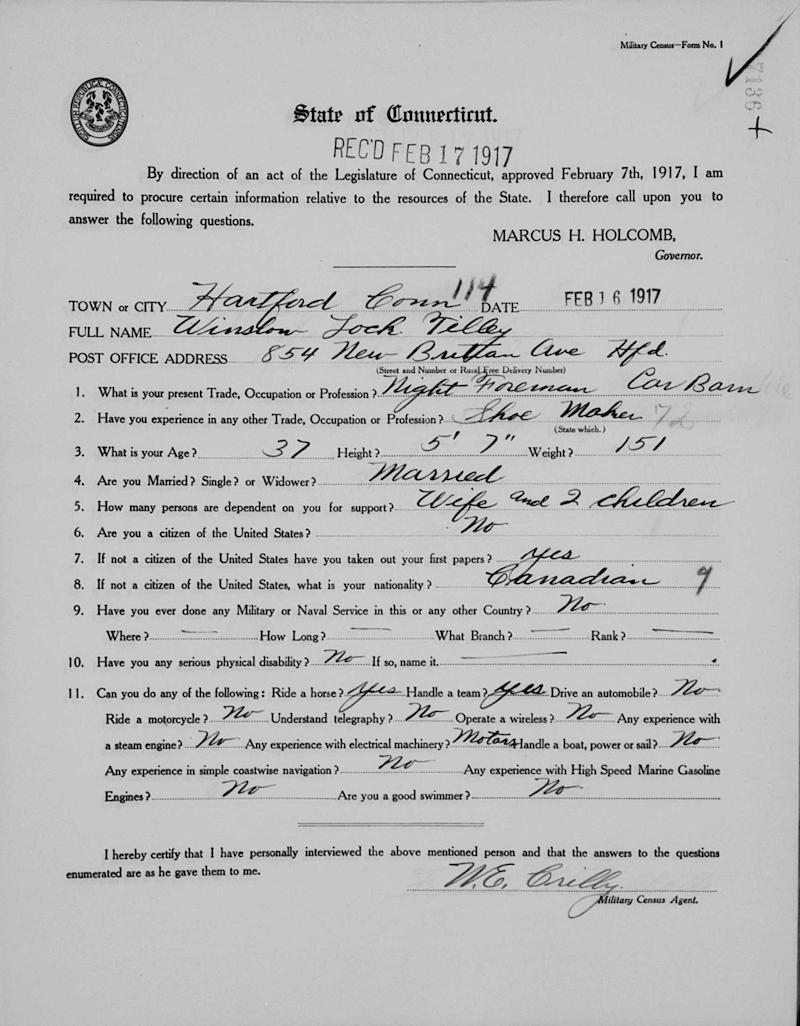 Military Census—Form No. 1
State of Connecticut.
REC'D FEB 17 1917
By direction of an act of the Legislature of Connecticut, approved February 7th, 1917, I am
required to procure certain information relative to the resources of the State. I therefore call upon you to
answer the following questions.
MARCUS H. HOLCOMB,
Governor.
TOWN or CITY Hartford Conn 114 DATE FEB 16 1917
FULL NAME Winslow Lock Tilley
POST OFFICE ADDRESS 854 New Brittan Ave Hfd.
(Street and Number or Rural Free Delivery Number)
1. What is your present Trade, Occupation or Profession? Night Foreman Car Barn
2. Have you experience in any other Trade, Occupation or Profession? Shoe Maker 72
(State which.)
3. What is your Age? 37 Height? 5' 7" Weight? 151
4. Are you Married? Single? or Widower? Married
5. How many persons are dependent on you for support? Wife and 2 children
6. Are you a citizen of the United States? No
7. If not a citizen of the United States have you taken out your first papers? yes
8. If not a citizen of the United States, what is your nationality? Canadian 9
9. Have you ever done any Military or Naval Service in this or any other Country? No
Where? — How Long? — What Branch? — Rank? —
10. Have you any serious physical disability? No If so, name it. —
11. Can you do any of the following: Ride a horse? yes Handle a team? yes Drive an automobile? No
Ride a motorcycle? No Understand telegraphy? No Operate a wireless? No Any experience with
a steam engine? No Any experience with electrical machinery? Motors Handle a boat, power or sail? No
Any experience in simple coastwise navigation? No Any experience with High Speed Marine Gasoline
Engines? No Are you a good swimmer? No
I hereby certify that I have personally interviewed the above mentioned person and that the answers to the questions
enumerated are as he gave them to me.
W.E. Crilly
Military Census Agent.